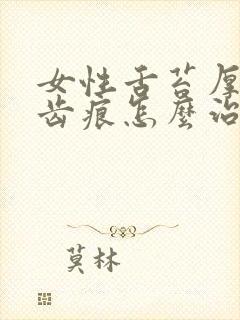 女性舌苔厚
齿痕怎麼治
莫林